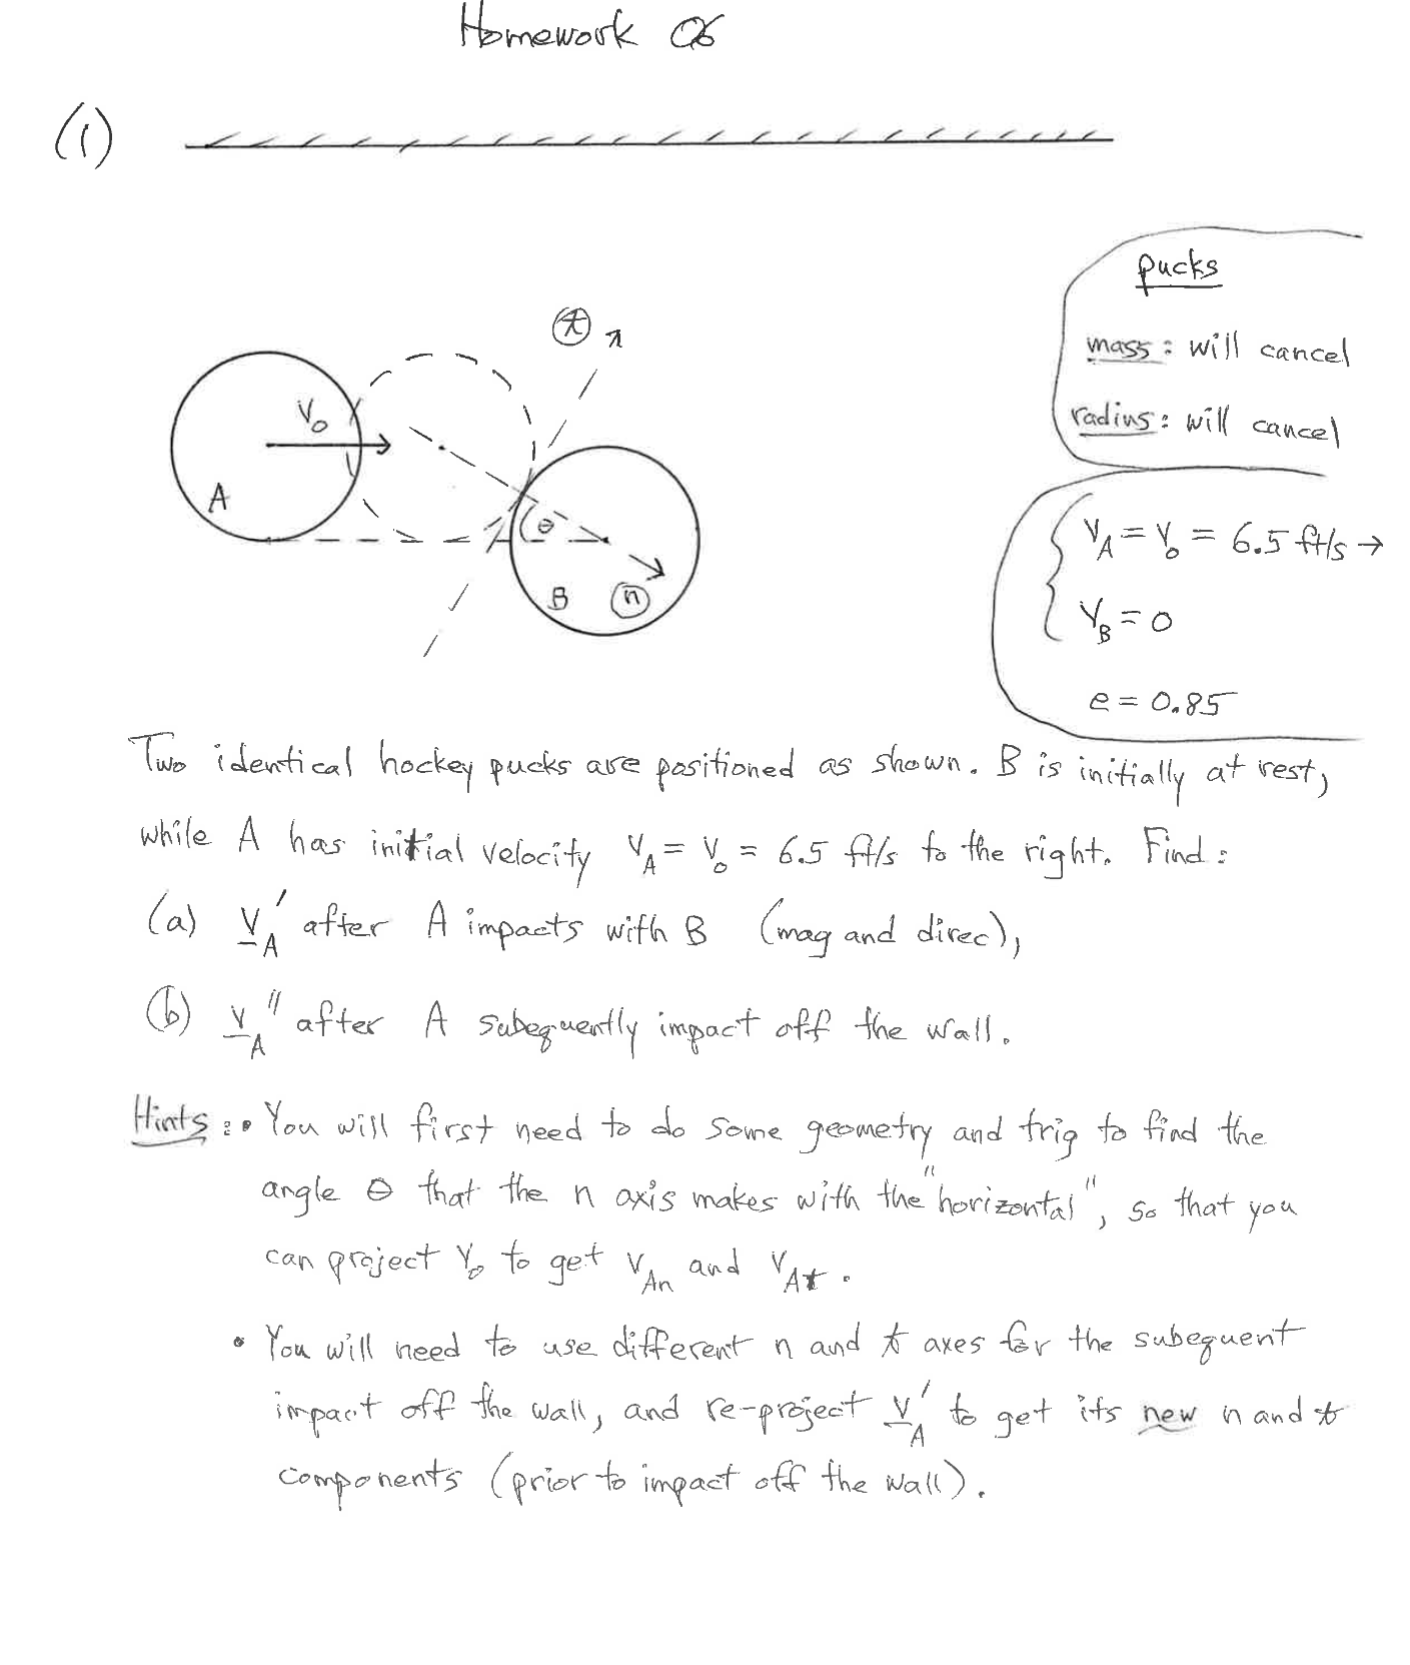 Homework 06
(1)
pucks
mass: will cancel
radius: will cancel
t
V₀
A
θ
B
n
V_A = V₀ = 6.5 ft/s →
V_B = 0
e = 0.85
Two identical hockey pucks are positioned as shown. B is initially at rest,
while A has initial velocity V_A = V₀ = 6.5 ft/s to the right. Find:
(a) V_A' after A impacts with B (mag and direc),
(b) V_A" after A subequently impact off the wall.
Hints: • You will first need to do some geometry and trig to find the
angle θ that the n axis makes with the "horizontal", so that you
can project V₀ to get V_An and V_At.
• You will need to use different n and t axes for the subequent
impact off the wall, and re-project V_A' to get its new n and t
components (prior to impact off the wall).